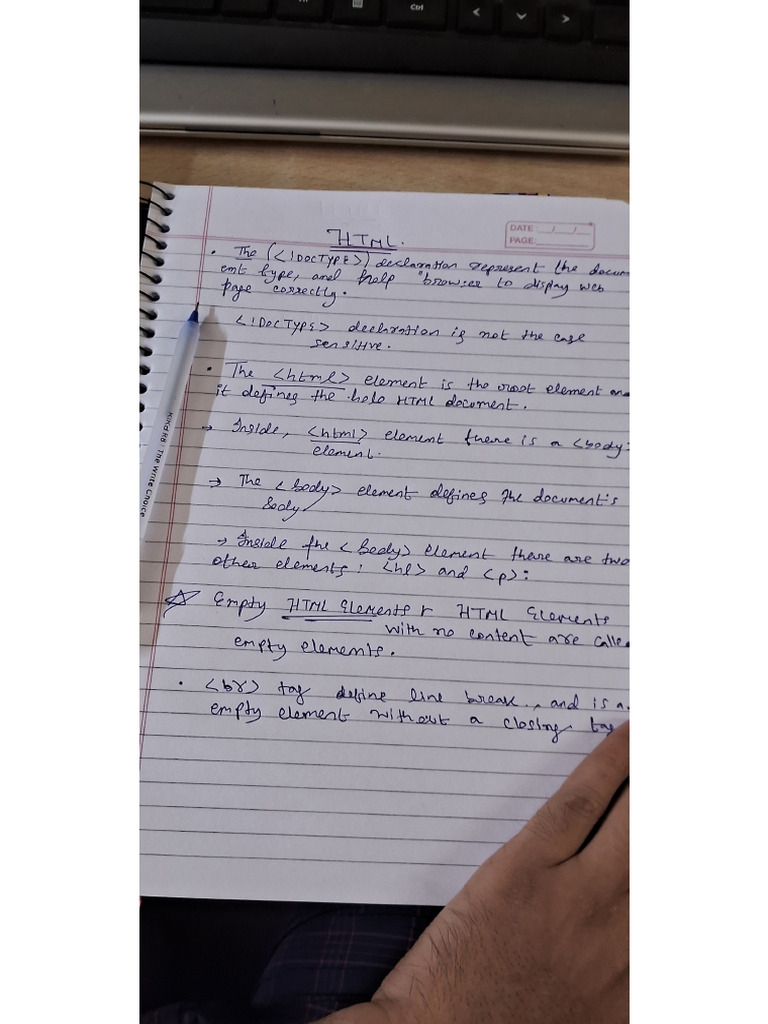 Ctrl
DATE :__/__/__
PAGE:
HTML.
• The (<!DOCTYPE>) declaration represent the docum
ent type, and help browser to display web
page correctly.
<!DOCTYPE> declaration is not the case
sensitive.
• The <html> element is the root element an
it defines the hole HTML document.
→ Inside, <html> element there is a <body>
element.
→ The <body> element defines the document's
body
→ Inside the <body> element there are two
other elements: <h1> and <p>:
☆ Empty HTML Elements HTML Elements
with no content are calle
empty elements.
• <br> tag define line break., and is a
empty element without a closing tag
Kind RB : The Write Choice